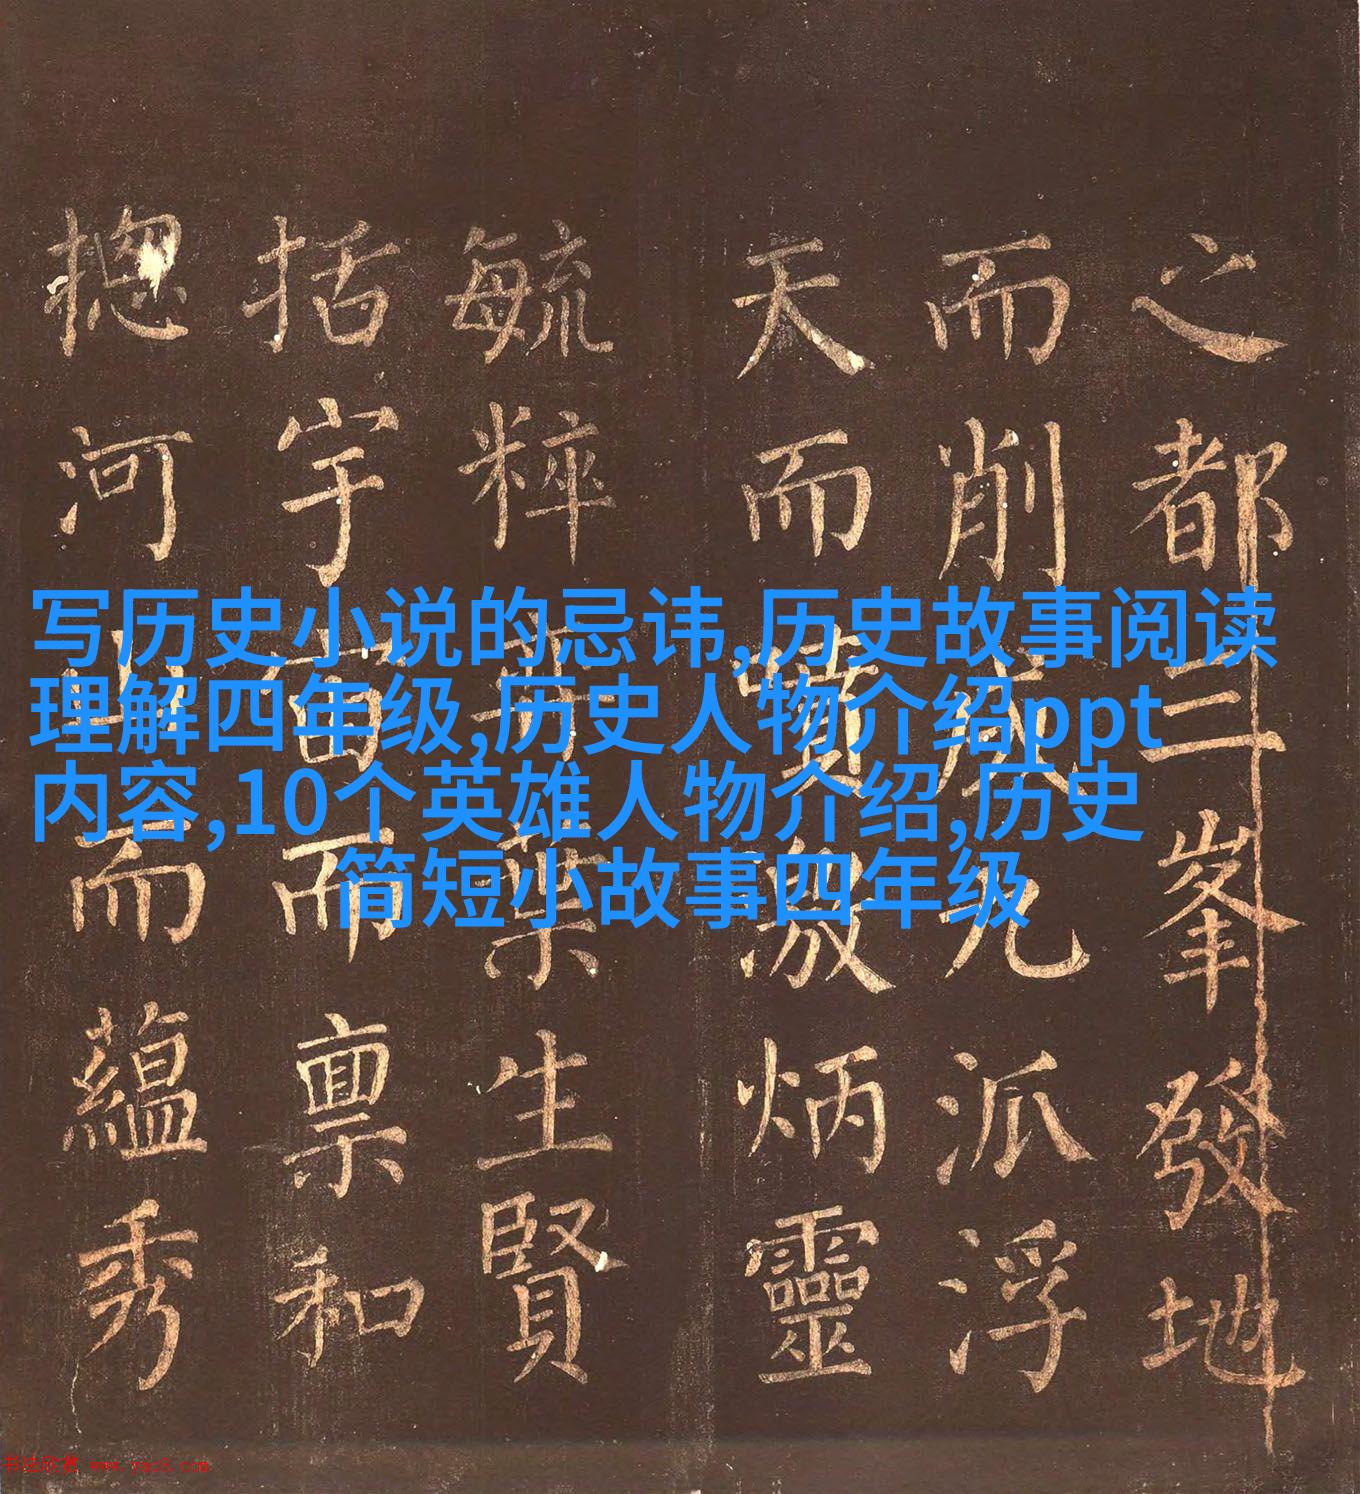 写历史小说的忌讳,历史故事阅读
理解四年级,历史人物介绍ppt
内容,10个英雄人物介绍,历史
简短小故事四年级
之都三峯發地
而削成九派浮
天而噴激炳靈
毓粹葉生賢
括宇宙而禀和
揔河山而蘊秀
书法欣赏 www.yac8.com